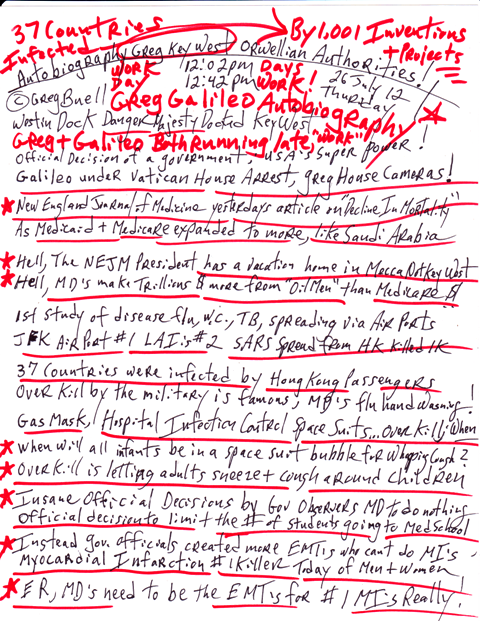 37 Countries
Infected
By 1,001 Inventions
+ Projects
Autobiography Greg Key West Orwellian Authorities!
WORK 12:02pm Days
DAY 12:42pm WORK!
26 July 12
Thursday
©Greg Buell
Greg Galileo Autobiography
Westin Dock Danger Majesty Docked Key West
Greg + Galileo Both Running late, "WORK"
Official Decision of a government, USA's Super Power!
Galileo under Vatican House Arrest, greg House Cameras!
New England Journal of Medicine yesterdays article on "Decline In Mortality"
As Medicaid + Medicare expanded to more, like Saudi Arabia
Hell, The NEJM President has a vacation home in Mecca Not Key West
Hell, MD's make Trillions $ more from "Oil Men" than Medicare $
1st Study of disease flu, w.c., TB, spreading via Air Ports
JFK AirPort #1 LAI is #2 SARS Spread from HK Killed 1K
37 Countries were infected by Hong Kong Passengers
Over Kill by the military is famous, MD's flu hand washing!
Gas Mask, Hospital Infection Control Space Suits... over Kill; When
When will all infants be in a space suit bubble for Whopping Cough?
Over Kill is letting adults sneeze + cough around Children
Insane Official Decisions by Gov Observers MD to do nothing
Official decision to limit the # of students going to Med School
Instead gov. officials created more EMT's who can't do MI's
Myocardial Infarction #1 Killer Today of Men + Women
ER, MD's need to be the EMT's for #1 MI's Really!